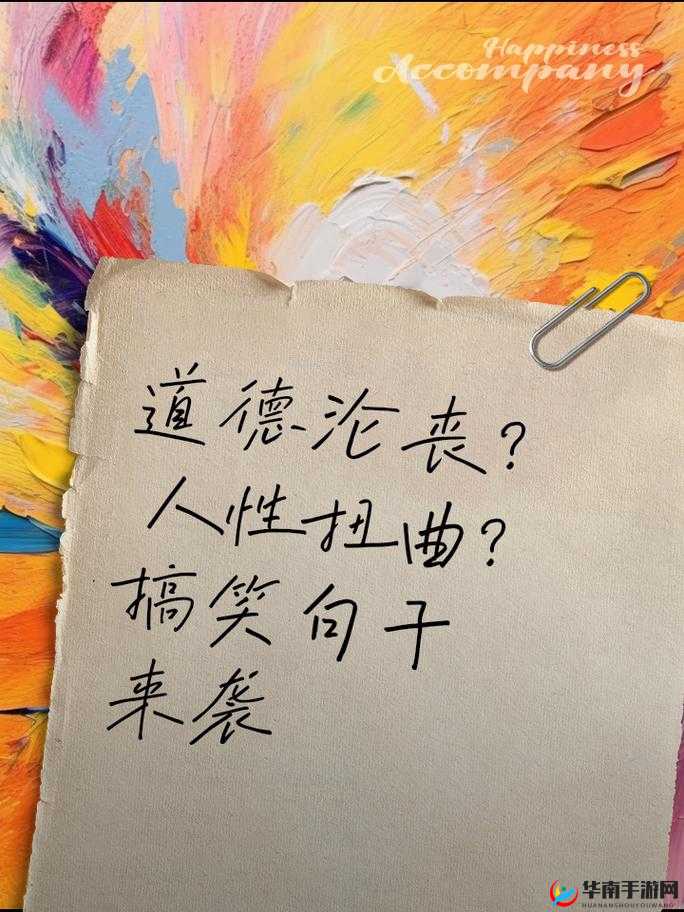 Happiness
Accompany
道德沦丧?
人性扭曲?
搞笑句子
来袭
华南手游网
HUANANSHOUYOUWANG